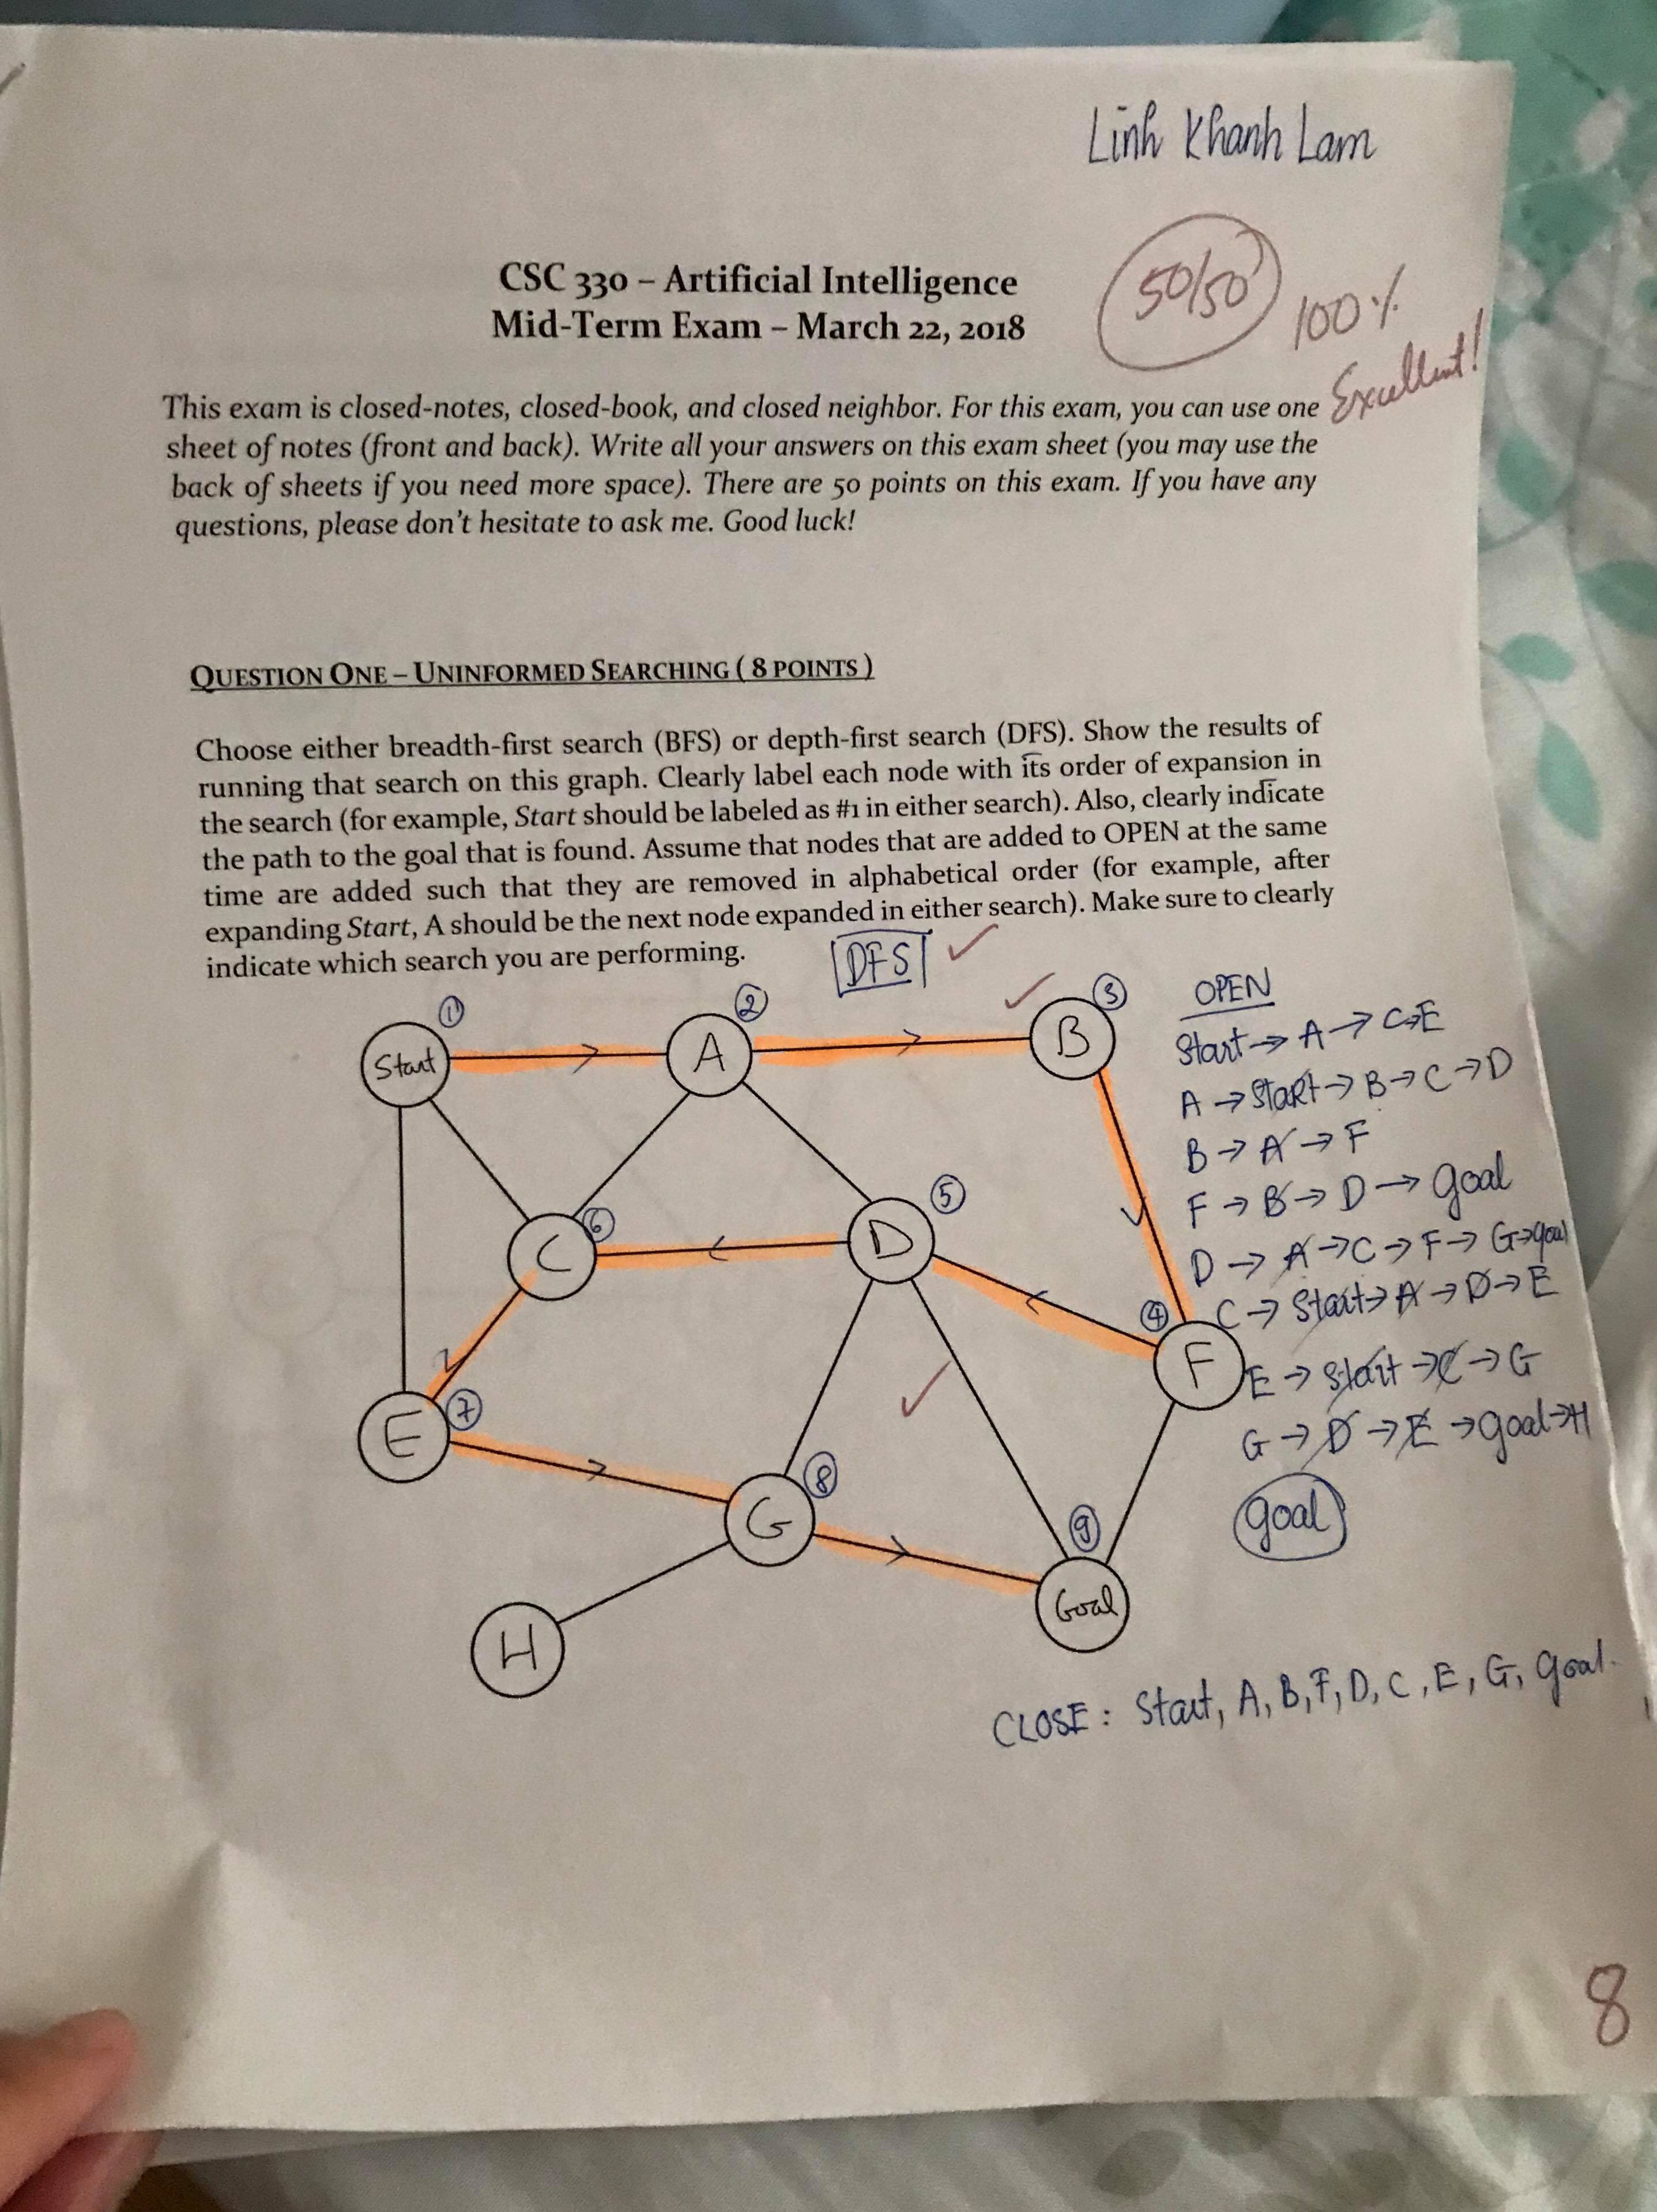 Linh Khanh Lam
CSC 330 – Artificial Intelligence
Mid-Term Exam – March 22, 2018
50/50
100%
Excellent!
This exam is closed-notes, closed-book, and closed neighbor. For this exam, you can use one
sheet of notes (front and back). Write all your answers on this exam sheet (you may use the
back of sheets if you need more space). There are 50 points on this exam. If you have any
questions, please don't hesitate to ask me. Good luck!
QUESTION ONE – UNINFORMED SEARCHING ( 8 POINTS )
Choose either breadth-first search (BFS) or depth-first search (DFS). Show the results of
running that search on this graph. Clearly label each node with its order of expansion in
the search (for example, Start should be labeled as #1 in either search). Also, clearly indicate
the path to the goal that is found. Assume that nodes that are added to OPEN at the same
time are added such that they are removed in alphabetical order (for example, after
expanding Start, A should be the next node expanded in either search). Make sure to clearly
indicate which search you are performing.
DFS ✓
① ② ✓ ③
Start A B
⑥ ⑤
C D
④
F
⑦
E
✓
⑧
G
⑨
Goal
H
OPEN
Start → A → C → E
A → Start → B → C → D
B → A → F
F → B → D → goal
D → A → C → F → G → goal
C → Start → A → D → E
E → Start → C → G
G → D → E → goal → H
goal
CLOSE : Start, A, B, F, D, C, E, G, goal.
8